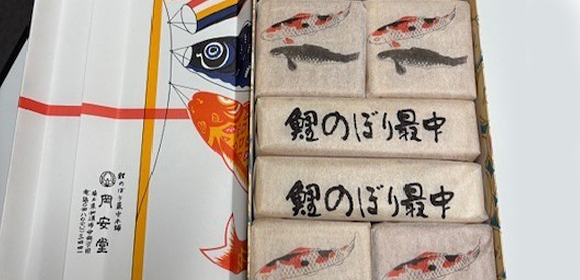 鯉のぼり最中
鯉のぼり最中
鯉のぼり最中本舗
岡安堂